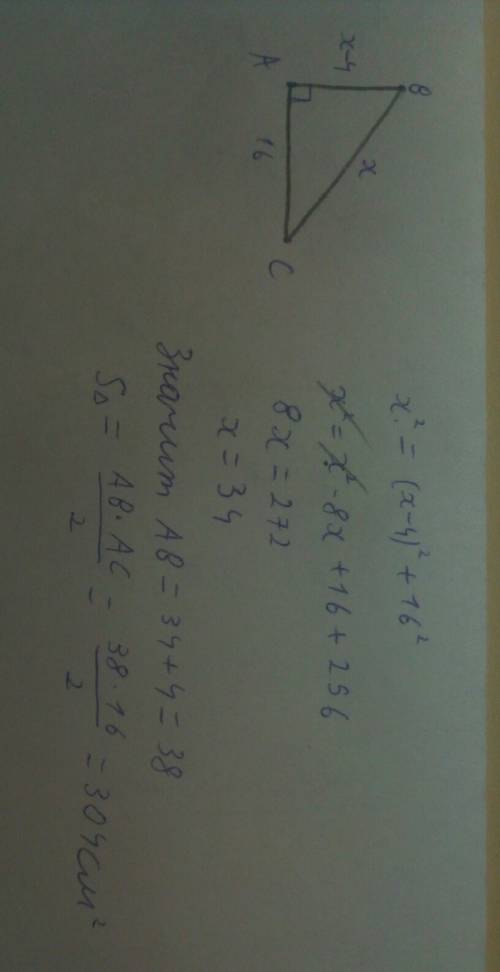 B
x-4
x
A
16
C
x² = (x-4)² + 16²
x² = x² - 8x + 16 + 256
8x = 272
x = 34
Значит AB = 34 + 4 = 38
S△ = AB·AC/2 = 38·16/2 = 304 см²